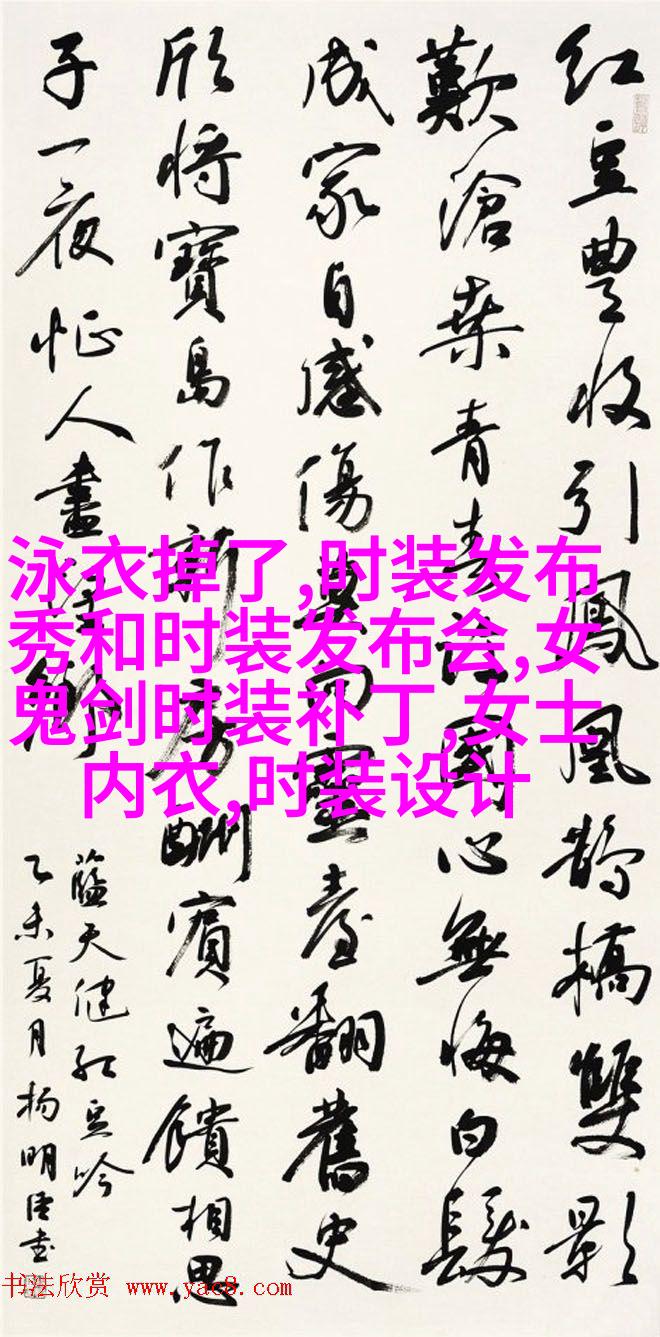 红豆豐收引鳳凰鵲橋雙影
歎滄桑青春許國心無悔白髮
成家自感傷莫向靈臺翻舊史
欣將寶島作新房酬賓遍饋相思
子一夜人盡
天健红豆吟
乙未夏月杨明臣書
泳衣掉了,时装发布
秀和时装发布会,女
鬼剑时装补丁,女士
内衣,时装设计
书法欣赏 www.yac8.com